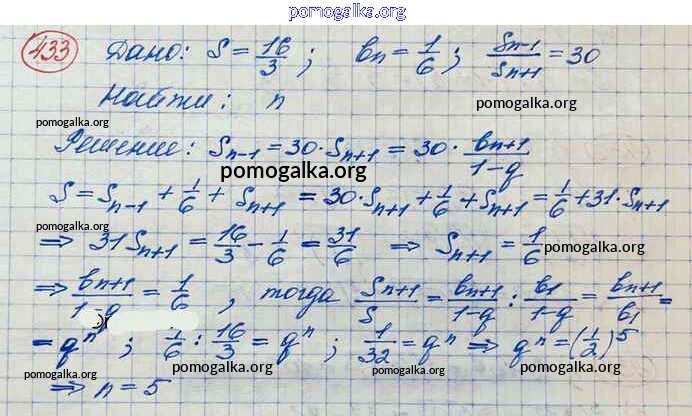 pomogalka.org
433 Дано: S = 16/3 ; bn = 1/6 ; Sn-1/Sn+1 = 30
Найти: n pomogalka.org
pomogalka.org
Решение: Sn-1 = 30·Sn+1 = 30· bn+1/1-q
pomogalka.org
S = Sn-1 + 1/6 + Sn+1 = 30·Sn+1 + 1/6 + Sn+1 = 1/6 + 31·Sn+1
pomogalka.org
⇒ 31Sn+1 = 16/3 - 1/6 = 31/6 ⇒ Sn+1 = 1/6
pomogalka.org
⇒ bn+1/1-q = 1/6 , тогда Sn+1/S = bn+1/1-q : b1/1-q = bn+1/b1 =
= qⁿ ; 1/6 : 16/3 = qⁿ ; 1/32 = qⁿ ⇒ qⁿ = (1/2)⁵
pomogalka.org pomogalka.org pomogalka.org
⇒ n = 5
pomogalka.org